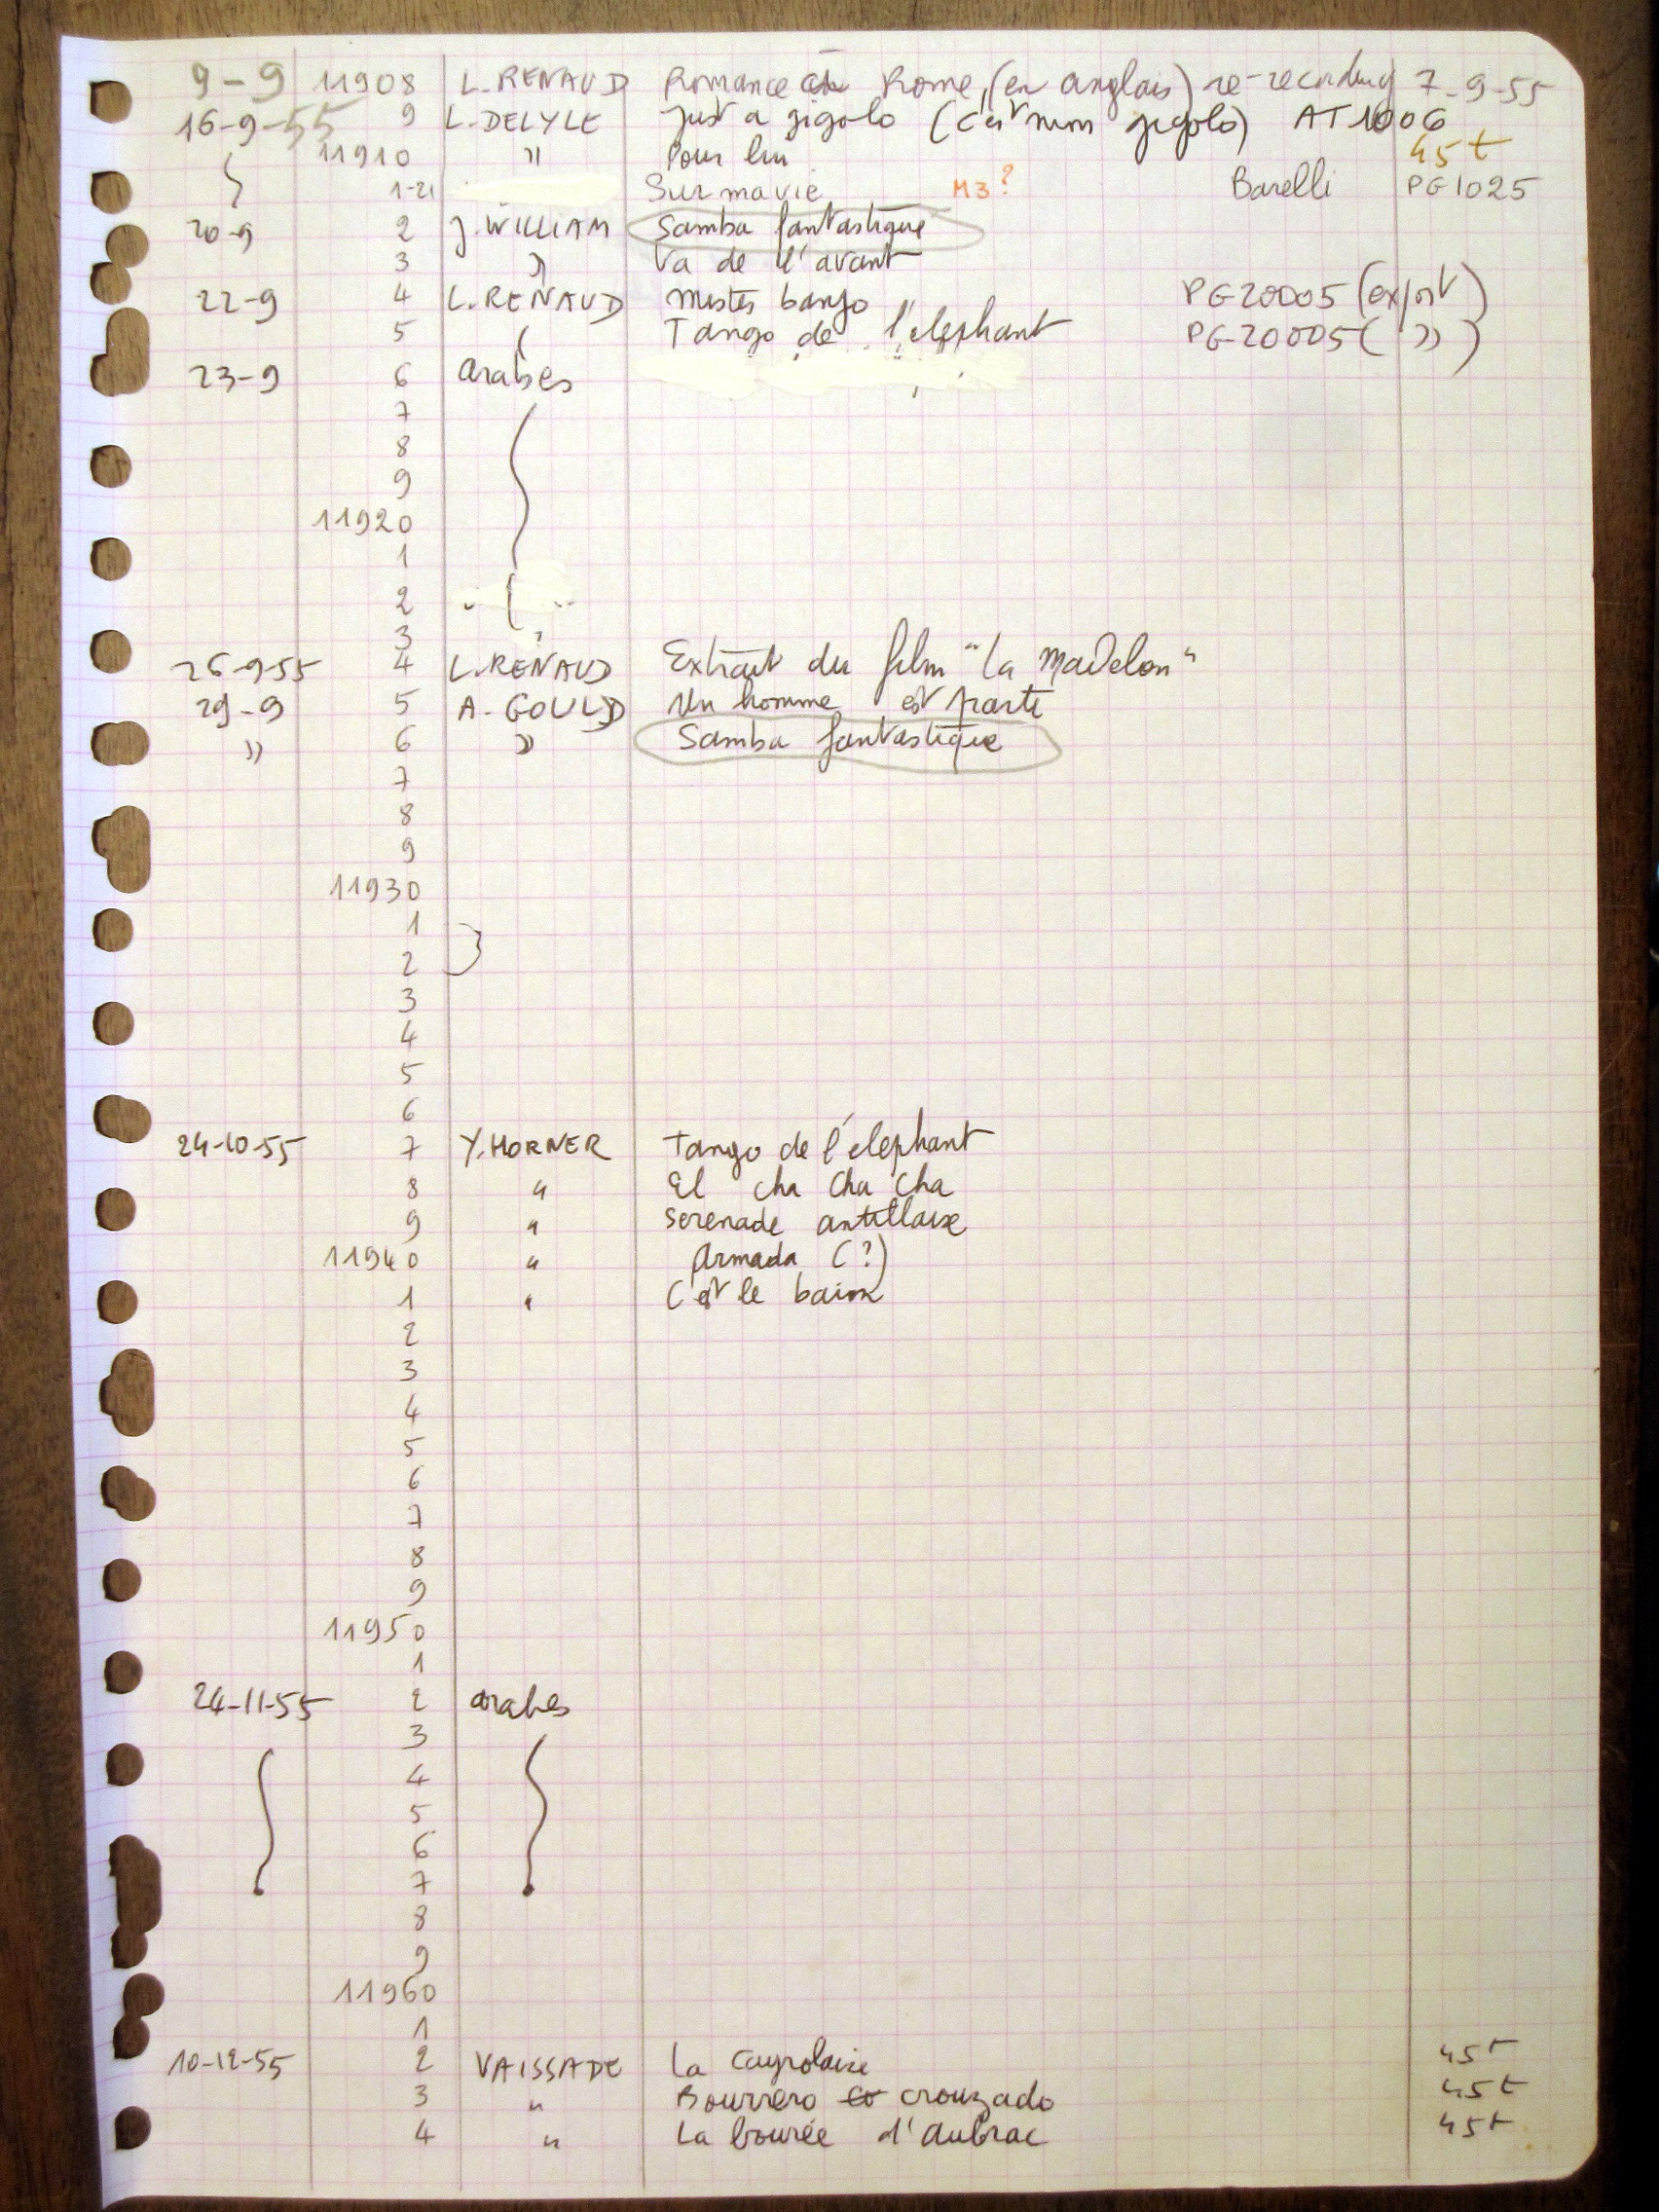 9-9 11908 L.RENAUD Romance à Rome (en anglais) re-recording 7-9-55
16-9-55 9 L.DELYLE Just a gigolo (c'est mon gigolo) AT1006
11910 " Pour lui 45t
1-21 Sur ma vie M3? Barelli PG1025
20-9 2 J.WILLIAM Samba fantastique
3 " Va de l'avant
22-9 4 L.RENAUD mister banjo PG20005 (export)
5 Tango de l'elephant PG20005 ( " )
23-9 6 arabes
7
8
9
11920
1
2
3
26-9-55 4 L.RENAUD Extrait du film "la Madelon"
29-9 5 A.GOULD Un homme est parti
" 6 " Samba fantastique
7
8
9
11930
1
2
3
4
5
6
24-10-55 7 Y.HORNER Tango de l'elephant
8 " El cha cha cha
9 " Serenade antillaise
11940 " Armada (?)
1 " C'est le
2
3
4
5
6
7
8
9
11950
1
24-11-55 2 arabes
3
4
5
6
7
8
9
11960
1
10-12-55 2 VAISSADE La Cayrolaise 45t
3 " Bourrero crouzado 45t
4 " La bourée d'Aubrac 45t